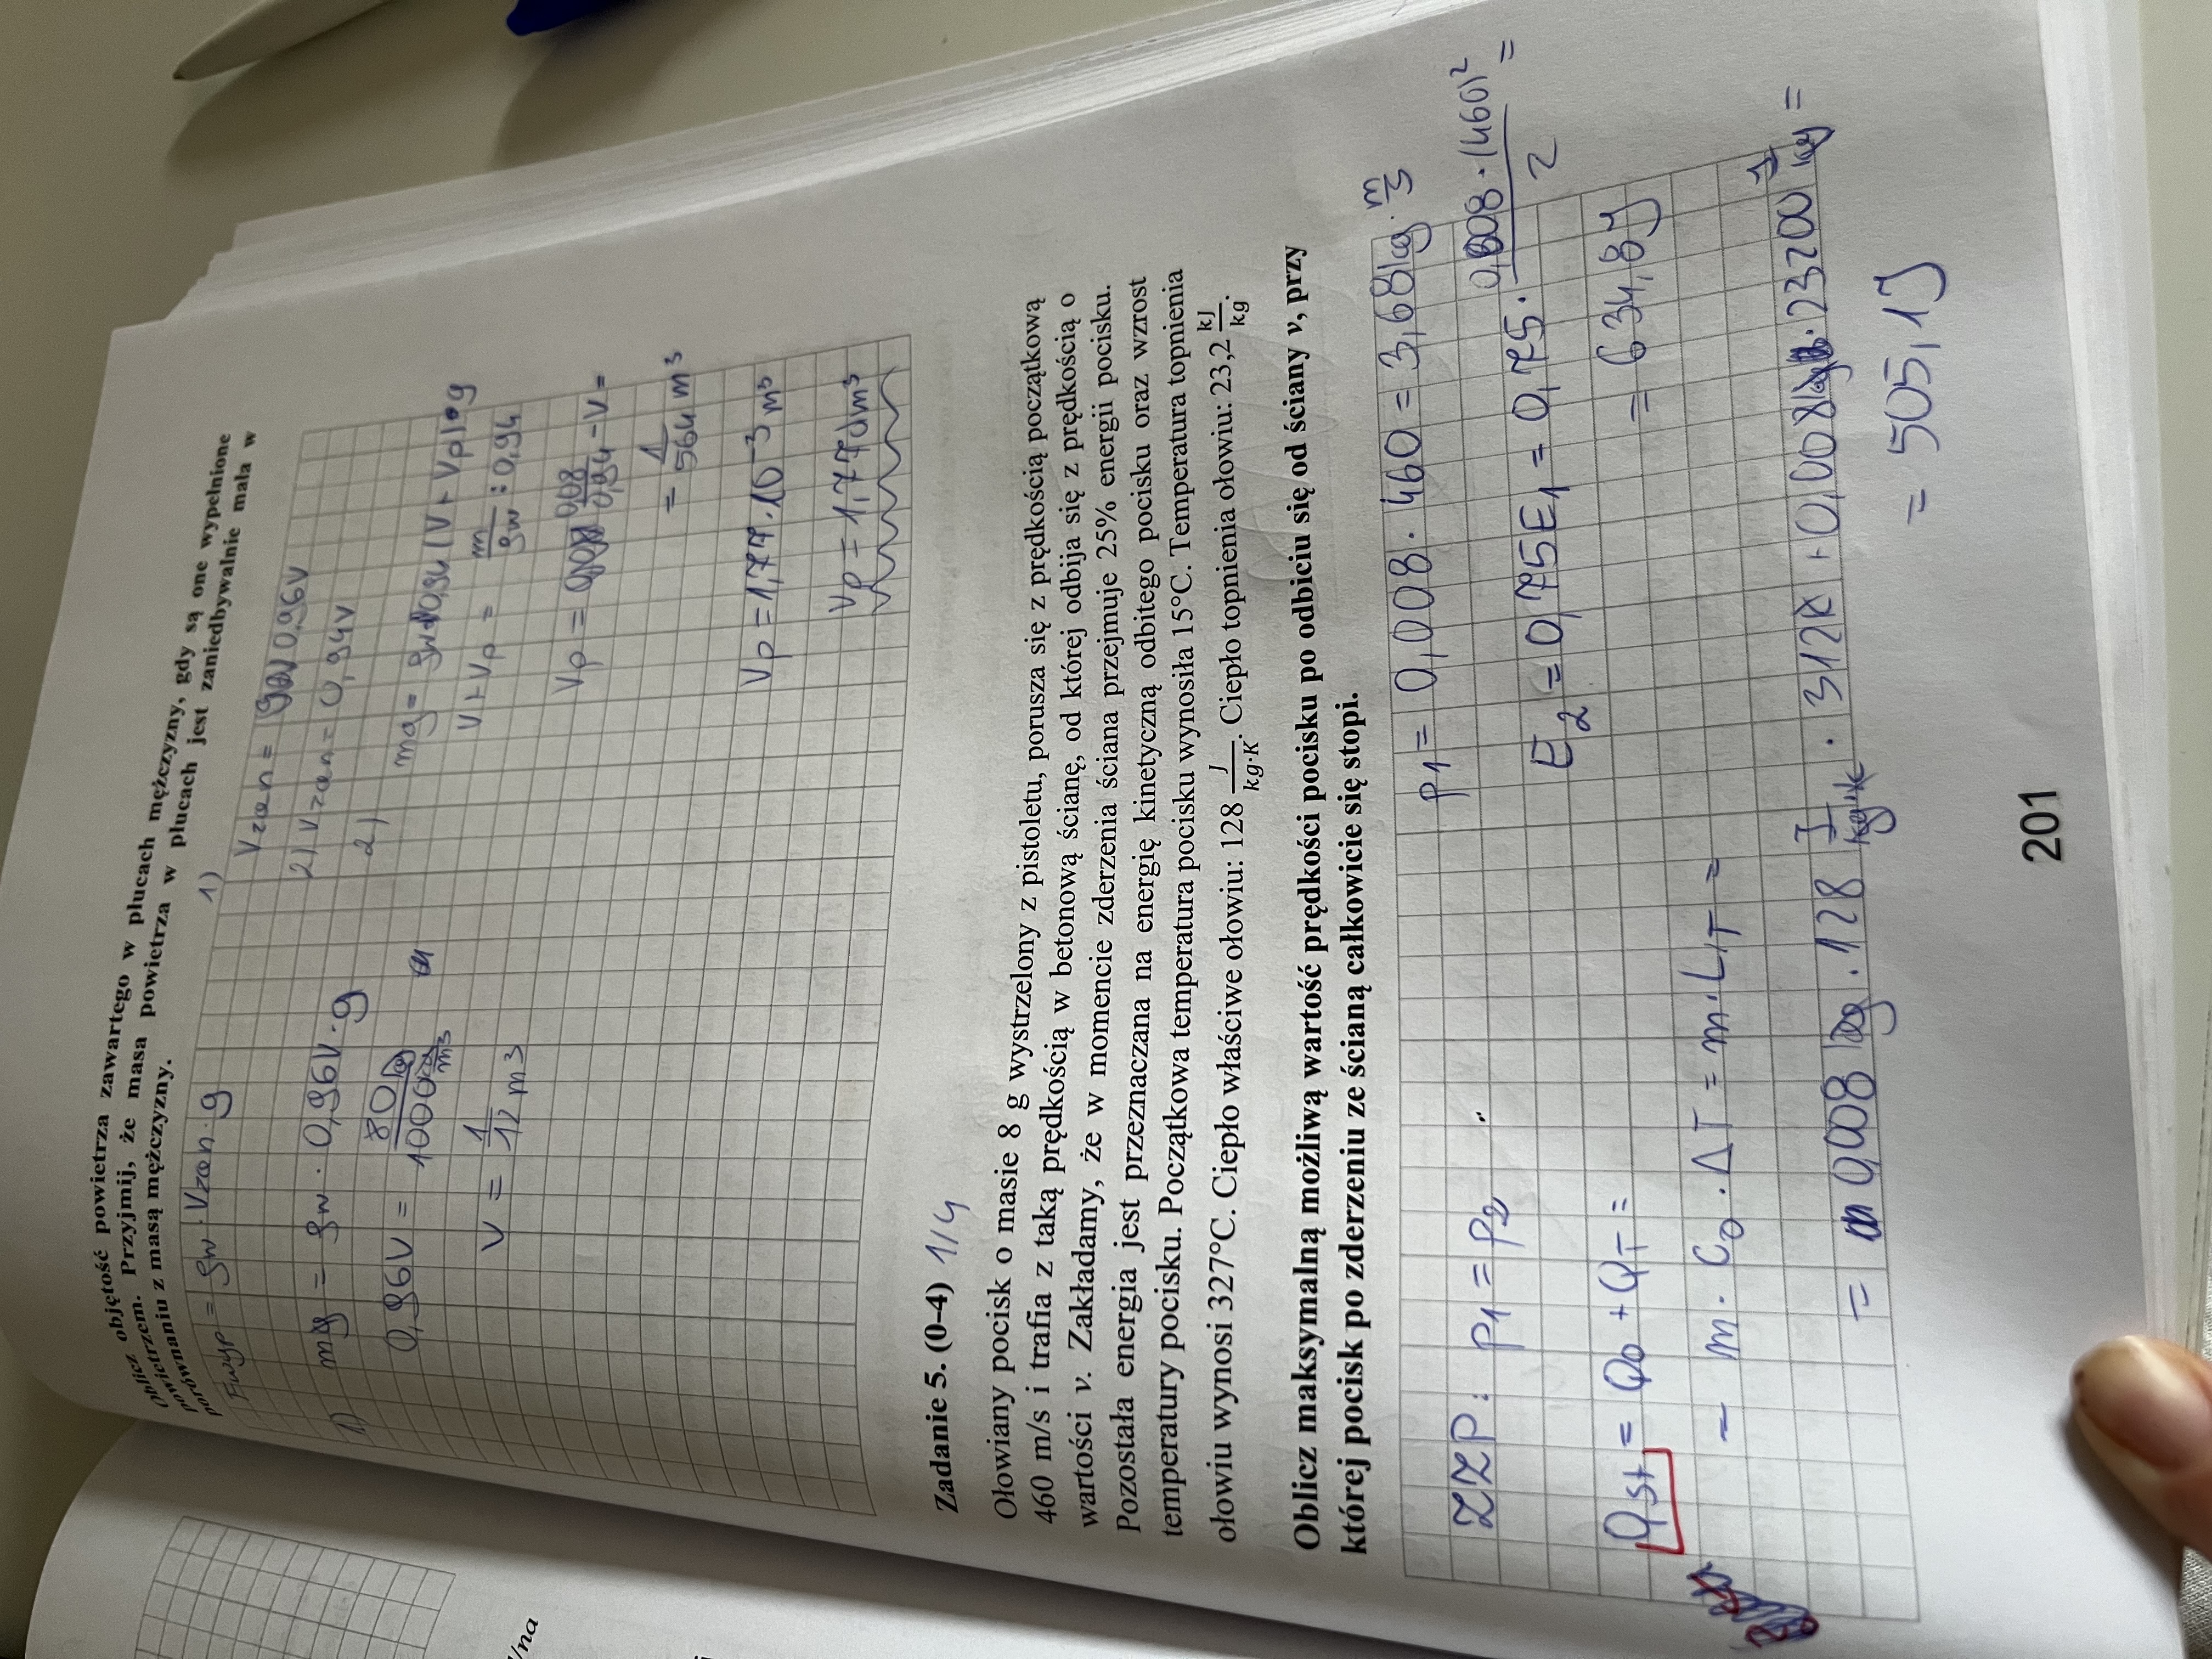 Oblicz objętość powietrza zawartego w płucach mężczyzny, gdy są one wypełnione
powietrzem. Przyjmij, że masa powietrza w płucach jest zaniedbywalnie mała w
porównaniu z masą mężczyzny.
Fwyp = ϱw · Vzan · g
1) mg = ϱw · 0,96V · g
0,96V =
V = 1/12 m³
1)
Vzan = 0,96V
2) Vzan = 0,94V
2)
V + Vp = m/ϱw : 0,94
= 1/564 m³
Vp = 1,77·10⁻³ m³
Vp = 1,77dm³
Zadanie 5. (0–4) 1/4
Ołowiany pocisk o masie 8 g wystrzelony z pistoletu, porusza się z prędkością początkową
460 m/s i trafia z taką prędkością w betonową ścianę, od której odbija się z prędkością o
wartości v. Zakładamy, że w momencie zderzenia ściana przejmuje 25% energii pocisku.
Pozostała energia jest przeznaczana na energię kinetyczną odbitego pocisku oraz wzrost
temperatury pocisku. Początkowa temperatura pocisku wynosiła 15°C. Temperatura topnienia
ołowiu wynosi 327°C. Ciepło właściwe ołowiu: 128 J/kg·K. Ciepło topnienia ołowiu: 23,2 kJ/kg.
Oblicz maksymalną możliwą wartość prędkości pocisku po odbiciu się od ściany v, przy
której pocisk po zderzeniu ze ścianą całkowicie się stopi.
ZZP: p1 = p2
p1 = 0,008 · 460 = 3,68 kg · m/s
E2 = 0,75E1 = 0,75 · 0,008 · (460)²/2 =
= 634,8J
Qst = Q0 + QT =
= m · C0 · ΔT = m · LT =
= 0,008 kg · 128 J/kg·K · 312K + 0,008kg · 23200 J/kg =
= 505,1J
201